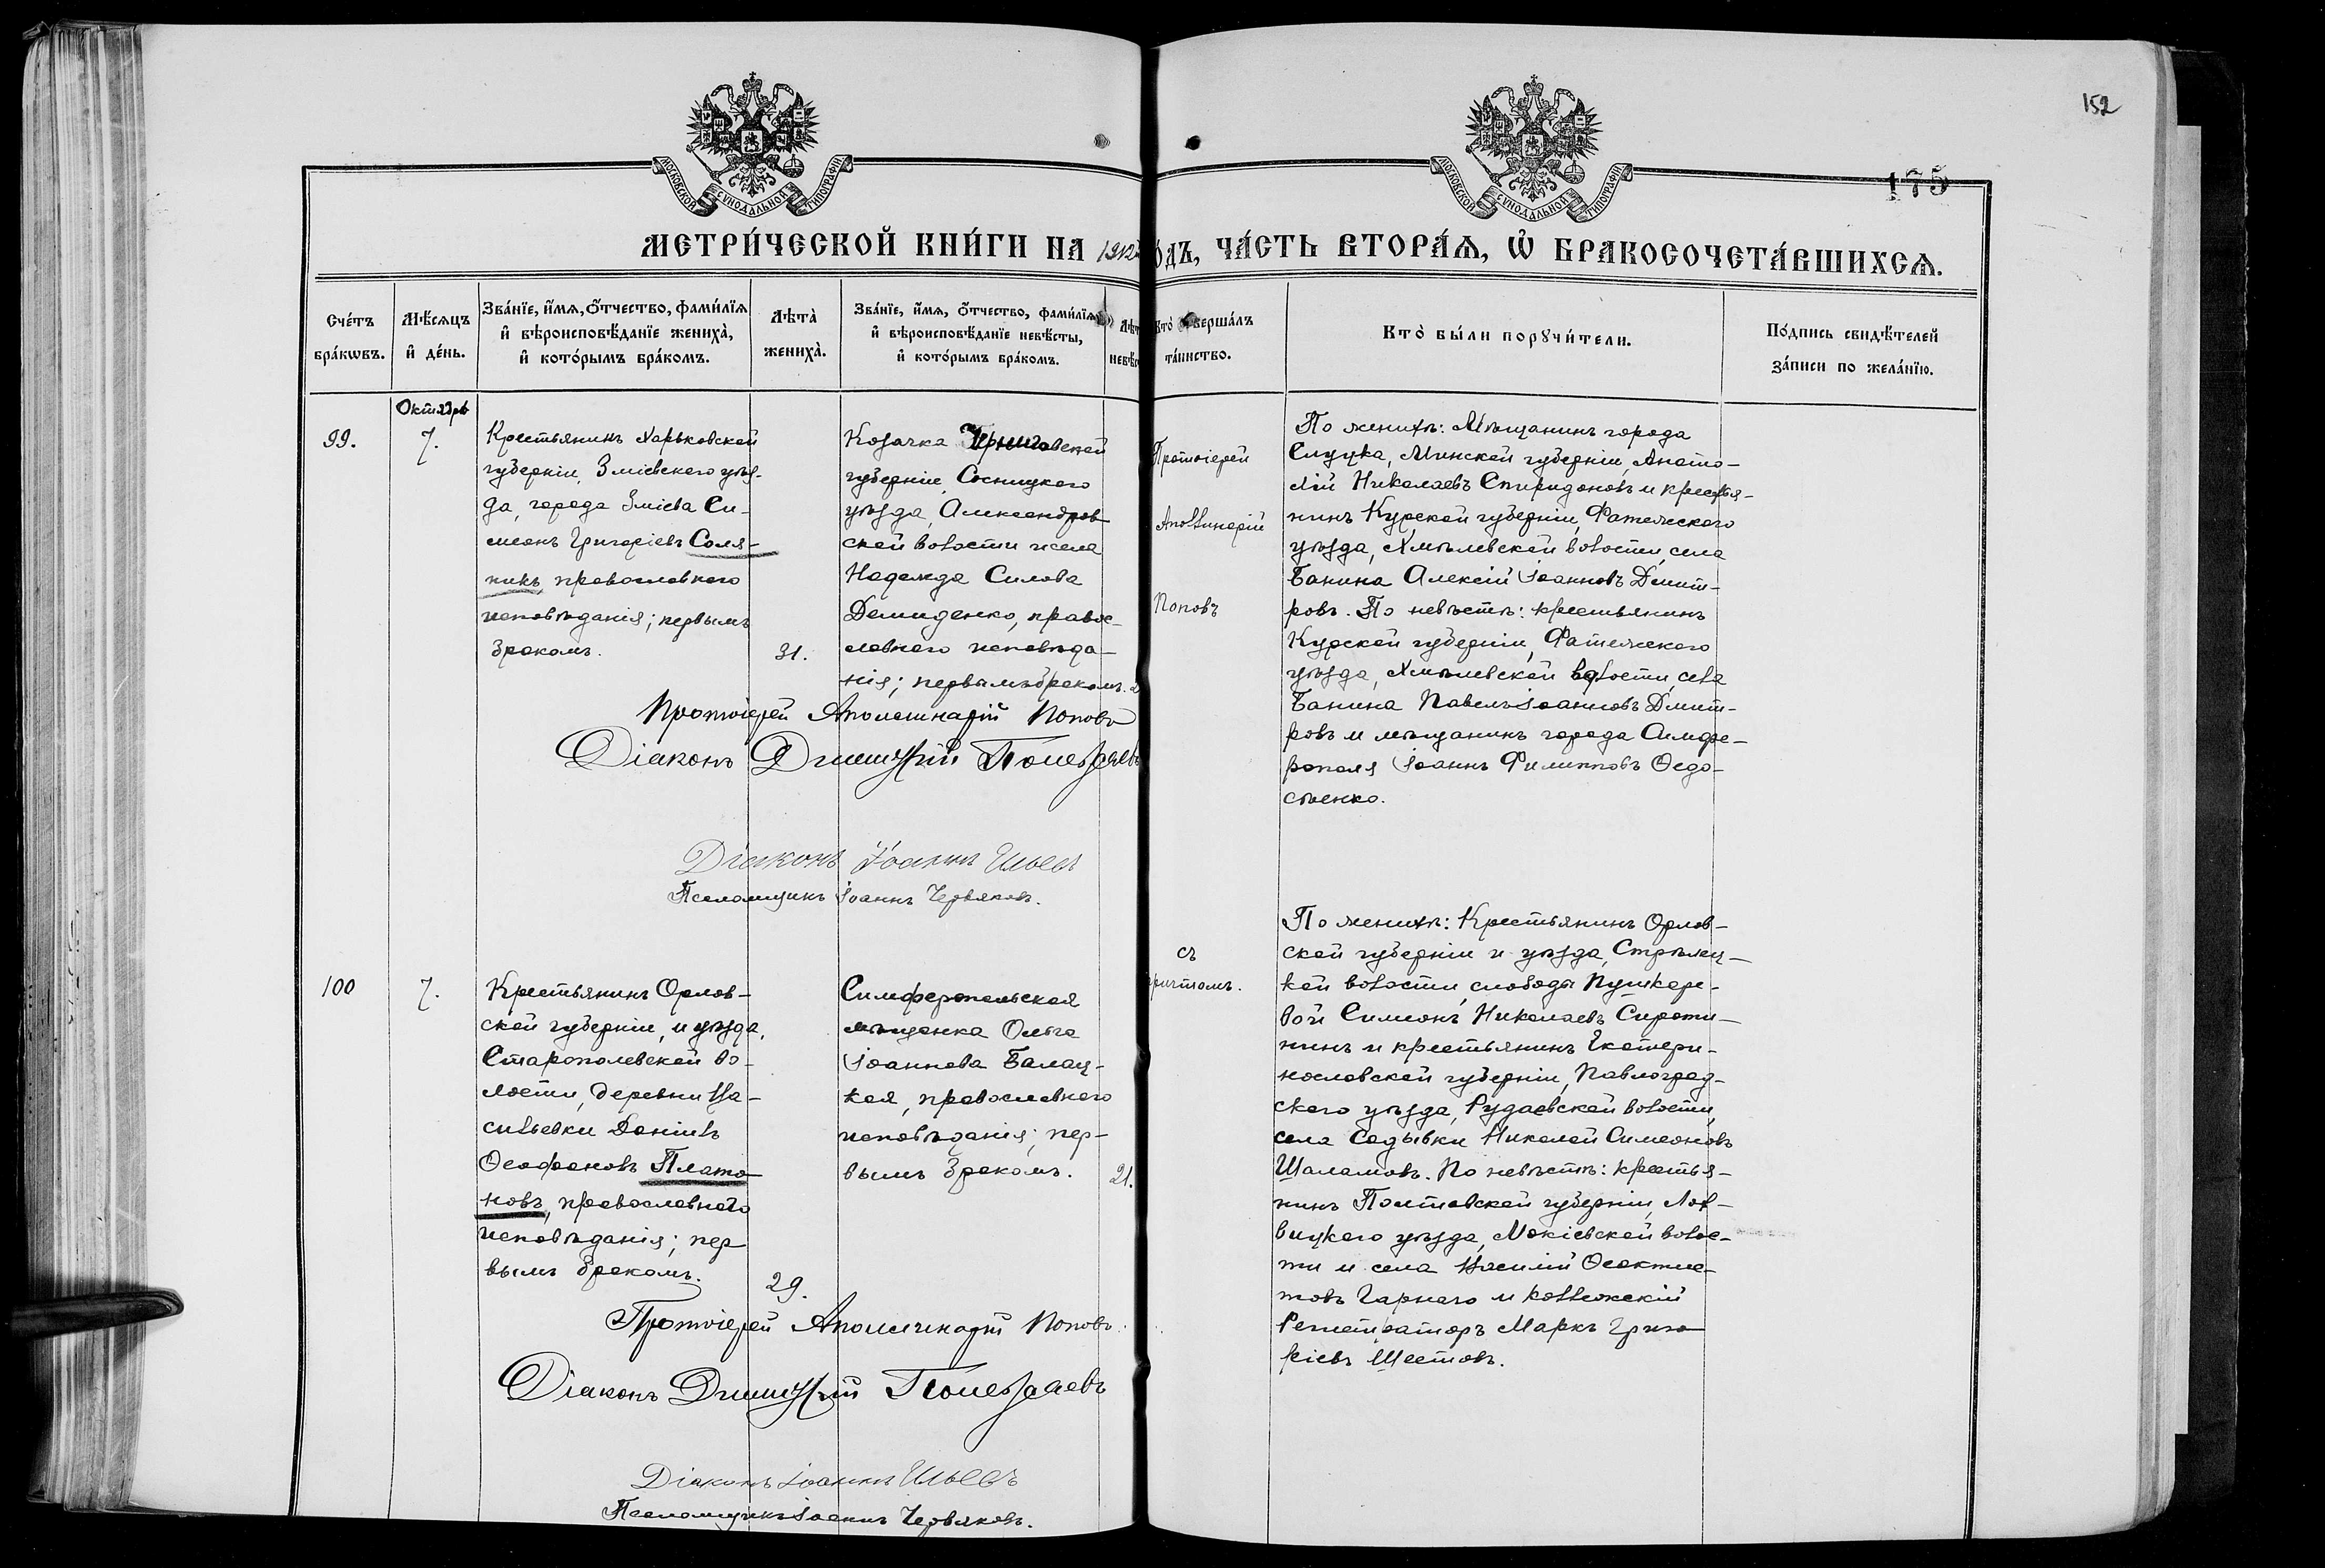 152
175
МОСКОВСКОЙ СѴНОДАЛЬНОЙ ТИПОГРАФІИ
МОСКОВСКОЙ СѴНОДАЛЬНОЙ ТИПОГРАФІИ
МЕТРИ́ЧЕСКОЙ КНИ́ГИ НА 1912 ГО́ДЪ, ЧА́СТЬ ВТОРА́Ѧ, Ѡ҆ БРАКОСОЧЕТА́ВШИХСѦ.
Сче́тъ бра́кѡвъ.
Мѣ́сяцъ и҆ де́нь.
Зва́нїе, и҆́мя, ѻ҆́тчество, фами́лїя
и҆ вѣроисповѣ́данїе жениха̀,
и҆ кото́рымъ бра́комъ.
Лѣта̀ жениха̀.
Зва́нїе, и҆́мя, ѻ҆́тчество, фами́лїя
и҆ вѣроисповѣ́данїе невѣ́сты,
и҆ кото́рымъ бра́комъ.
Кто̀ совершáлъ
та́инство.
Кто̀ бы́ли порꙋчи́тели.
По́дпись свидѣ́телей
за́писи по жела́нїю.
Октябрь
99.
7.
Крестьянинъ Харьковской
губерніи, Зміевского уѣз-
да, города Зміева Си-
меонъ Григоріевъ Соля-
никъ, православнаго
исповѣданія; первымъ
бракомъ.
31.
Козачка Черниговской
губерніи, Сосницкого
уѣзда, Александров-
ской волости и села
Надежда Силова
Демиденко, правос-
лавнаго исповѣда-
нія; первымъ бракомъ.
Протоіерей
Аполлинарій
Поповъ
По женихѣ: Мѣщанинъ города
Слуцка, Минской губерніи, Анато-
лій Николаевъ Спиридоновъ и крестья-
нинъ Курской губерніи, Фатежского
уѣзда, Хмѣлевской волости, села
Банина Алексій Іоанновъ Дмит-
ровъ. По невѣстѣ: крестьянинъ
Курской губерніи, Фатежского
уѣзда, Хмѣлевской волости, села
Банина Павелъ Іоанновъ Дмит-
ровъ и мѣщанинъ города Симфе-
рополя Іоаннъ Филипповъ Ѳедо-
сѣенко.
Протоіерей Аполлинарій Поповъ
Діаконъ Димитрій
Діаконъ Іоаннъ Ильевъ
Псаломщикъ Іоаннъ Червяковъ.
100
7.
Крестьянинъ Орлов-
ской губерніи, и уѣзда,
Старопольевской во-
лости, деревни Ва-
сильевки Даніилъ
Ѳеофановъ Плато-
новъ, православнаго
исповѣданія; пер-
вымъ бракомъ.
29.
Симферопольская
мѣщанка Ольга
Іоаннова Балац-
кая, православнаго
исповѣданія; пер-
вымъ бракомъ.
21.
съ
причтомъ.
По женихѣ: Крестьянинъ Орлов-
ской губерніи и уѣзда, Стрѣлец-
кой волости, слободы Пушкаре-
вой Симеонъ Николаевъ Сироти-
нинъ и крестьянинъ Екатери-
нославской губерніи, Павлоград-
ского уѣзда, Рудаевской волости,
села Садывки Николай Симеоновъ
Шаламовъ. По невѣстѣ: крестья-
нинъ Полтавской губерніи, Лох-
вицкого уѣзда, Мокіевской волос-
ти и села Василій Ѳеоктис-
товъ Гарнаго и Коллежскій
Регистраторъ Маркъ Григо-
ріевъ Шестовъ.
Протоіерей Аполлинарій Поповъ
Діаконъ Димитрій
Діаконъ Іоаннъ Ильевъ
Псаломщикъ Іоаннъ Червяковъ.